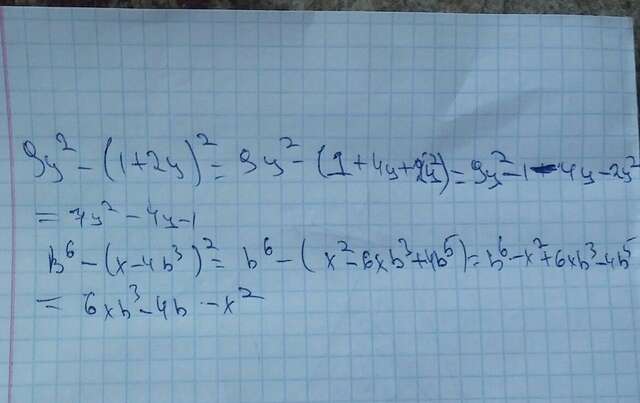 9y² - (1+2y)² = 9y² - (1+4y+2y²) = 9y² - 1 - 4y - 2y²
= 7y² - 4y - 1
b⁶ - (x - 4b³)² = b⁶ - (x² - 6xb³ + 4b⁵) = b⁶ - x² + 6xb³ - 4b⁵
= 6xb³ - 4b - x²